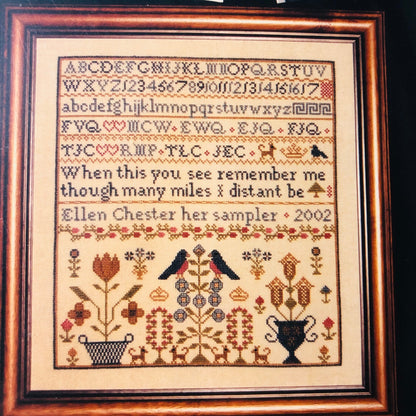 ABCDEFGHIJKLMNOPQRSTUV
WXYZ1234567891011121314151617
abcdefghijklmnopqrstuvwxyz
FVQ MCW · EWQ · EJQ · FJQ
TJC RMP · TLC · JEC ·
When this you see remember me
though many miles I distant be
Ellen Chester her sampler · 2002